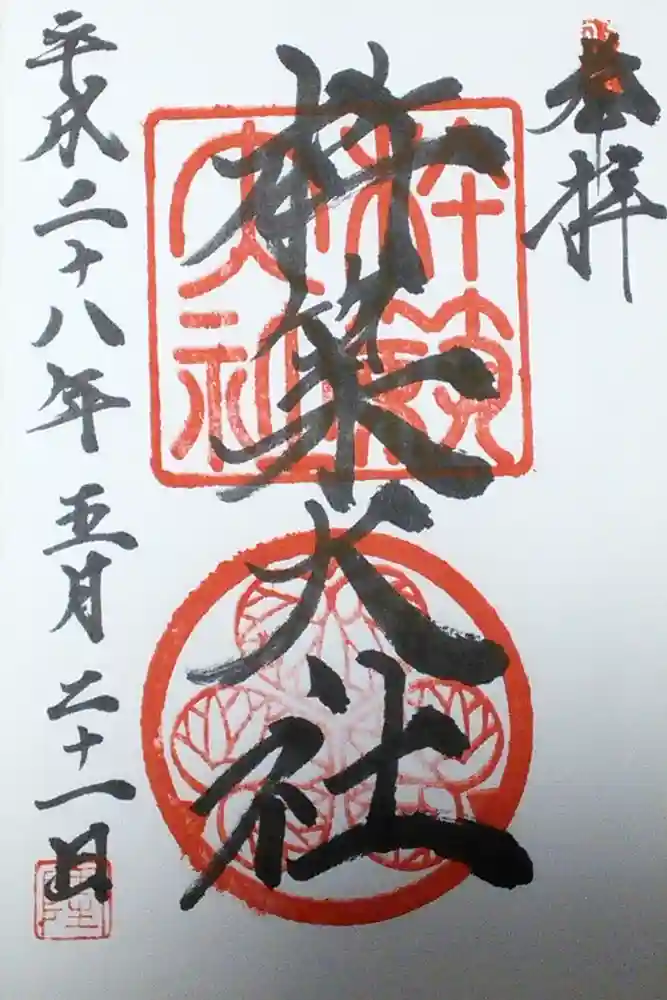 奉拝
杵築大社
杵築大社
平成二十八年五月二十一日